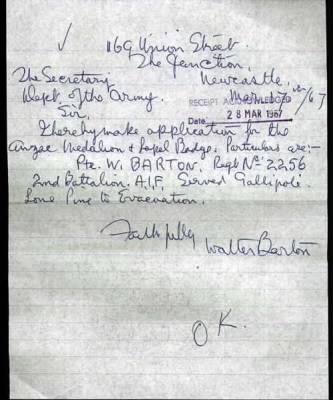 169 Union Street.
The Junction,
The Secretary Newcastle,
Dept of the Army. Mar 17th/67
RECEIPT ACKNOWLEDGED
Sir, Date 28 MAR 1967
I hereby make application for the
Anzac Medalion & Lapel Badge. Particulars are:-
Pte. W. BARTON. Regtl No 2256
2nd Battalion. A.I.F. Served Gallipoli.
Lone Pine to Evacuation.
Faithfully
Walter Barton
OK.